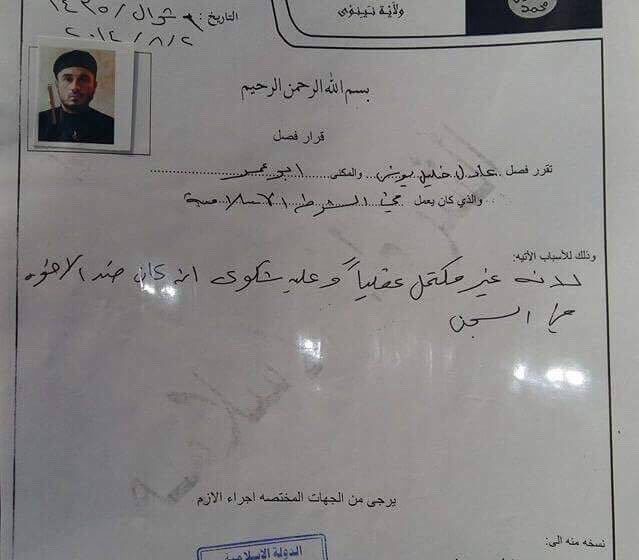 محمد
ولاية نينوى
التاريخ: ٦ شوال / ١٤٣٥
٢٠١٤/٨/٢
بسم الله الرحمن الرحيم
قرار فصل
تقرر فصل عادل خليل يونس والمكنى ابو عمر
والذي كان يعمل في الشرطة الاسلامية
وذلك للأسباب الأتيه:
لانه غير مكتمل عقلياً وعليه شكوى انه كان ضد الاخوه
في السجن
يرجى من الجهات المختصه اجراء الازم
نسخه منه الى:
الدولة الاسلامية